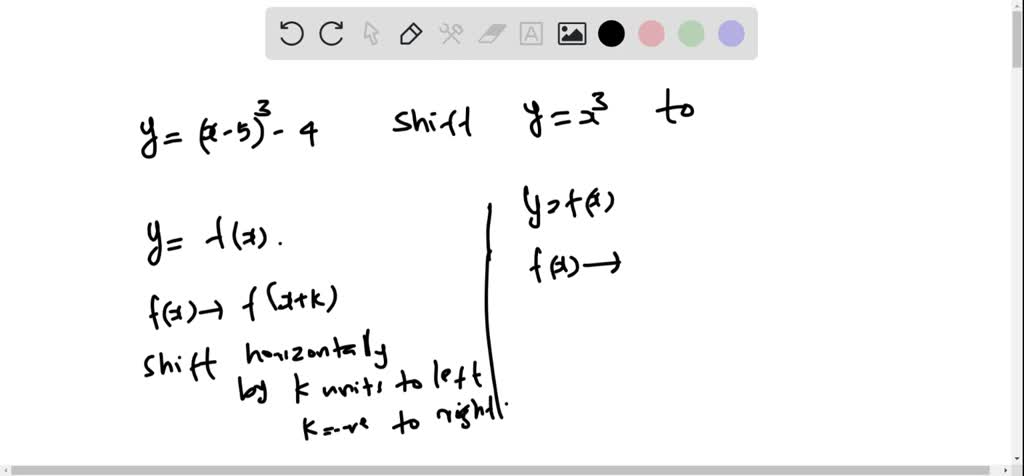 y = (x-5)³ - 4 shift y = x³ to
y = f(x).
f(x) → f(x+k)
shift horizontally
by k units to left
k=-ve to right.
y=f(x)
f(x) →
A